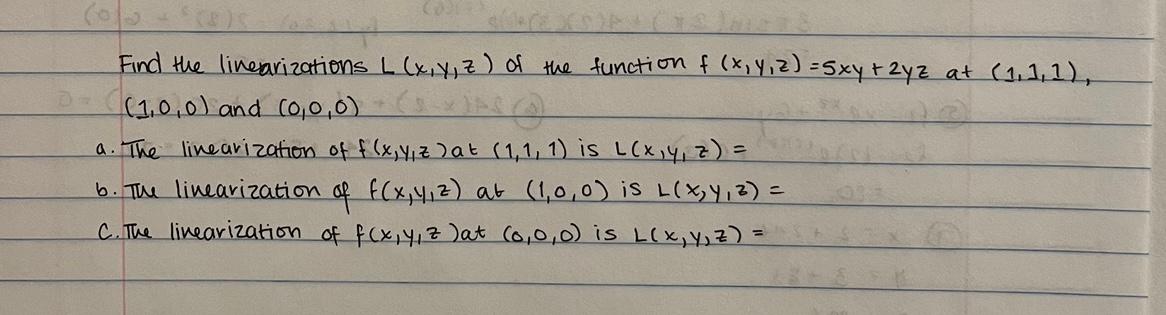 Find the linearizations L (x,y,z) of the function f (x,y,z) = 5xy + 2yz at (1,1,1),
(1,0,0) and (0,0,0)
a. The linearization of f(x,y,z) at (1,1,1) is L(x,y,z) =
b. The linearization of f(x,y,z) at (1,0,0) is L(x,y,z) =
C. The linearization of f(x,y,z) at (0,0,0) is L(x,y,z) =